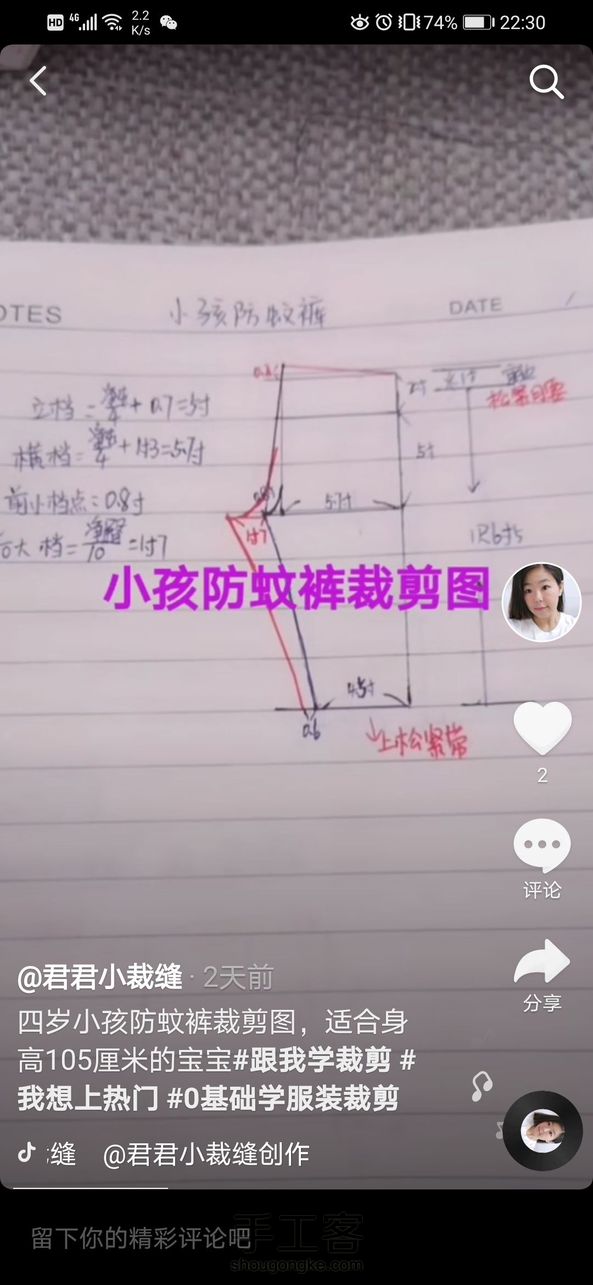 HD 4G 2.2 K/s 74% 22:30
NOTES
小孩防蚊裤
DATE
立档=/4+0.7=5寸
横档=/4+1寸3=5.7寸
前小档点:0.8寸
后大档=/10=1寸7
2寸
松紧
5寸
5.7寸
1寸7
1尺6寸5
小孩防蚊裤裁剪图
4.5寸
0.6
上松紧带
2
评论
分享
@君君小裁缝 · 2天前
四岁小孩防蚊裤裁剪图，适合身
高105厘米的宝宝#跟我学裁剪 #
我想上热门 #0基础学服装裁剪
缝 @君君小裁缝创作
留下你的精彩评论吧
手工客
shougongke.com